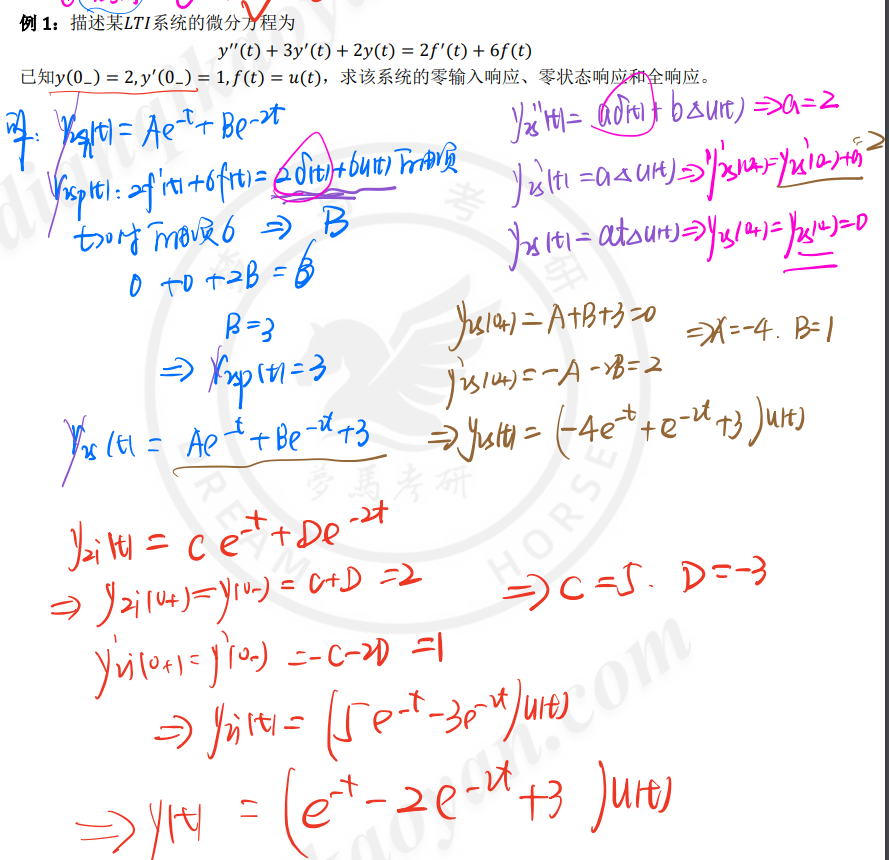 例 1：描述某LTI系统的微分方程为
y′′(t) + 3y′(t) + 2y(t) = 2f′(t) + 6f(t)
已知y(0₋) = 2, y′(0₋) = 1, f(t) = u(t)，求该系统的零输入响应、零状态响应和全响应。
(t) = Ae^-t + Be^-2t
(t): 2f'(t)+6f(t) = 2δ(t)+6u(t)
t>0时 6 ⇒ B
0 + 0 + 2B = 6
B = 3
⇒ Yzsp(t) = 3
Yzs(t) = Ae^-t + Be^-2t + 3
y''zs(t) = aδ(t) + bΔu(t) ⇒ a = 2
y'zs(t) = aΔu(t) ⇒ y'zs(0+) = y'zs(0-) + a = 2
yzs(t) = atΔu(t) ⇒ yzs(0+) = yzs(0-) = 0
yzs(0+) = A+B+3 = 0 ⇒ A = -4. B = 1
y'zs(0+) = -A -2B = 2
⇒ yzs(t) = (-4e^-t + e^-2t + 3)u(t)
yzi(t) = Ce^-t + De^-2t
⇒ yzi(0+) = y(0-) = C+D = 2 ⇒ C = 5. D = -3
y'zi(0+) = y'(0-) = -C-2D = 1
⇒ yzi(t) = (5e^-t - 3e^-2t)u(t)
⇒ y(t) = (e^-t - 2e^-2t + 3)u(t)
夢馬考研
DREAM HORSE
kaoyan.com